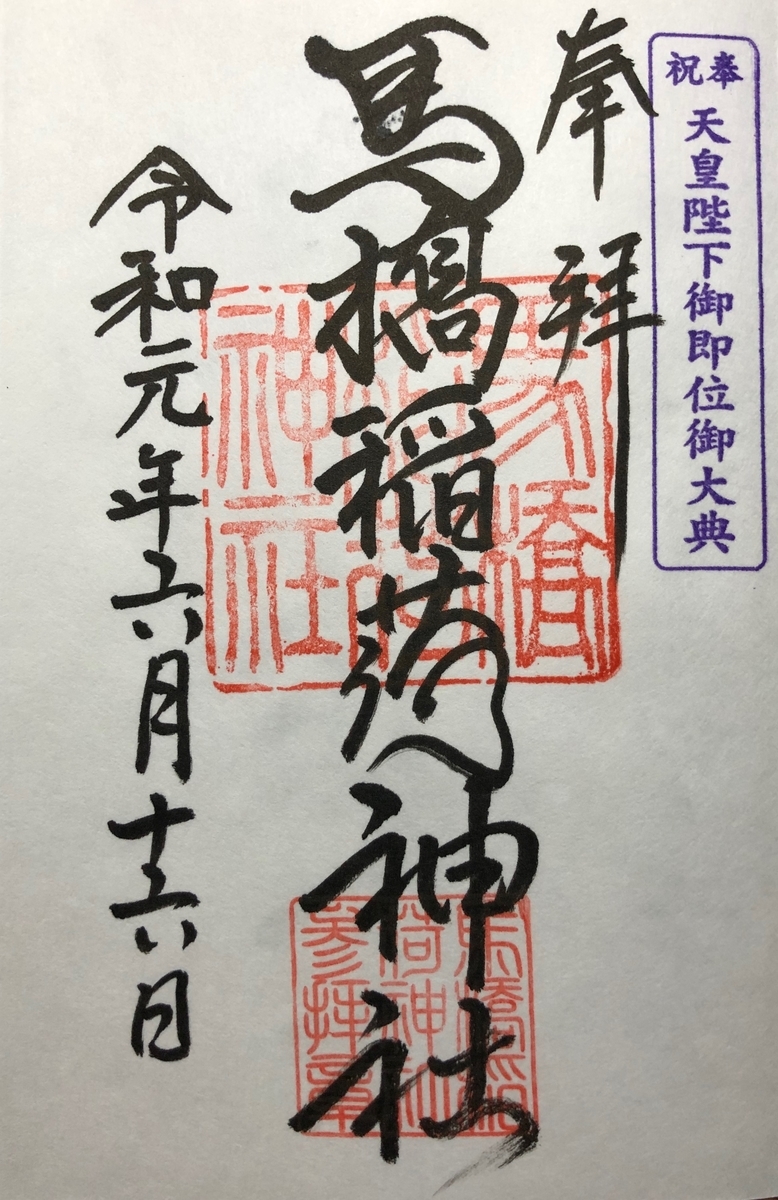 奉祝
天皇陛下御即位御大典
奉拝
馬橋稲荷神社
令和元年六月十六日
馬橋
稲荷
神社
馬橋稲
荷神社
参拝章